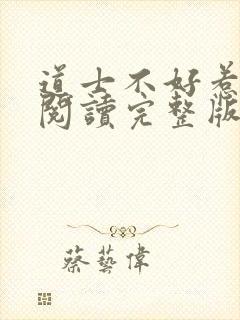 道士不好惹
閱讀完整版
蔡藝偉